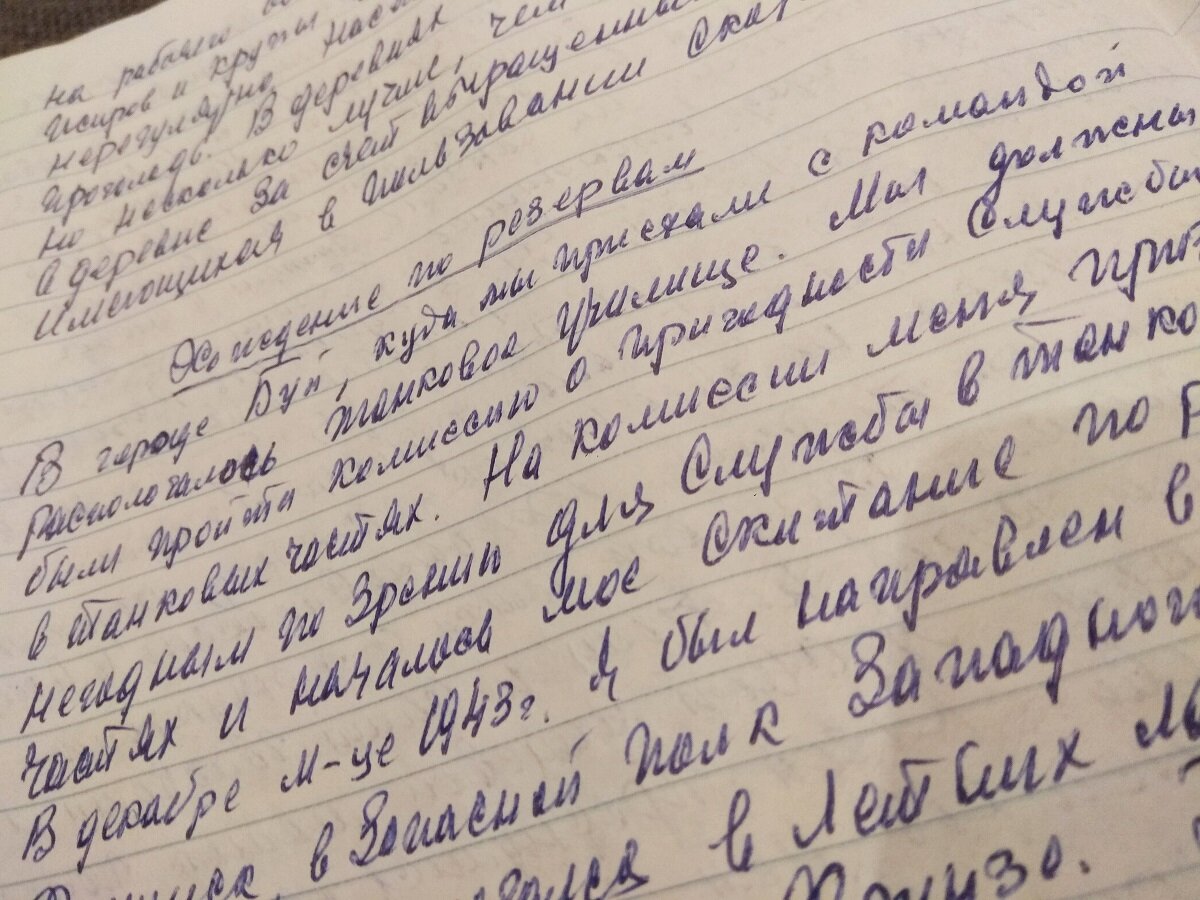 на рабочего
жиров и крупы
нерегулярно. Насе
впроголодь. В деревнях
но несколько лучше, чем
в деревне за счет выращенных
имеющихся в пользовании скота
Хождение по резервам
В городе Буй, куда мы приехали с командой
распологалось танковое училище. Мы должны
были пройти комиссию о пригодности службы
в танковых частях. На комиссии меня приз
негодным по зрению для службы в танко
частях и началось мое скитание по р
В декабре м-це 1943г. я был направлен в
в Запасной полк Западного
в летних ла